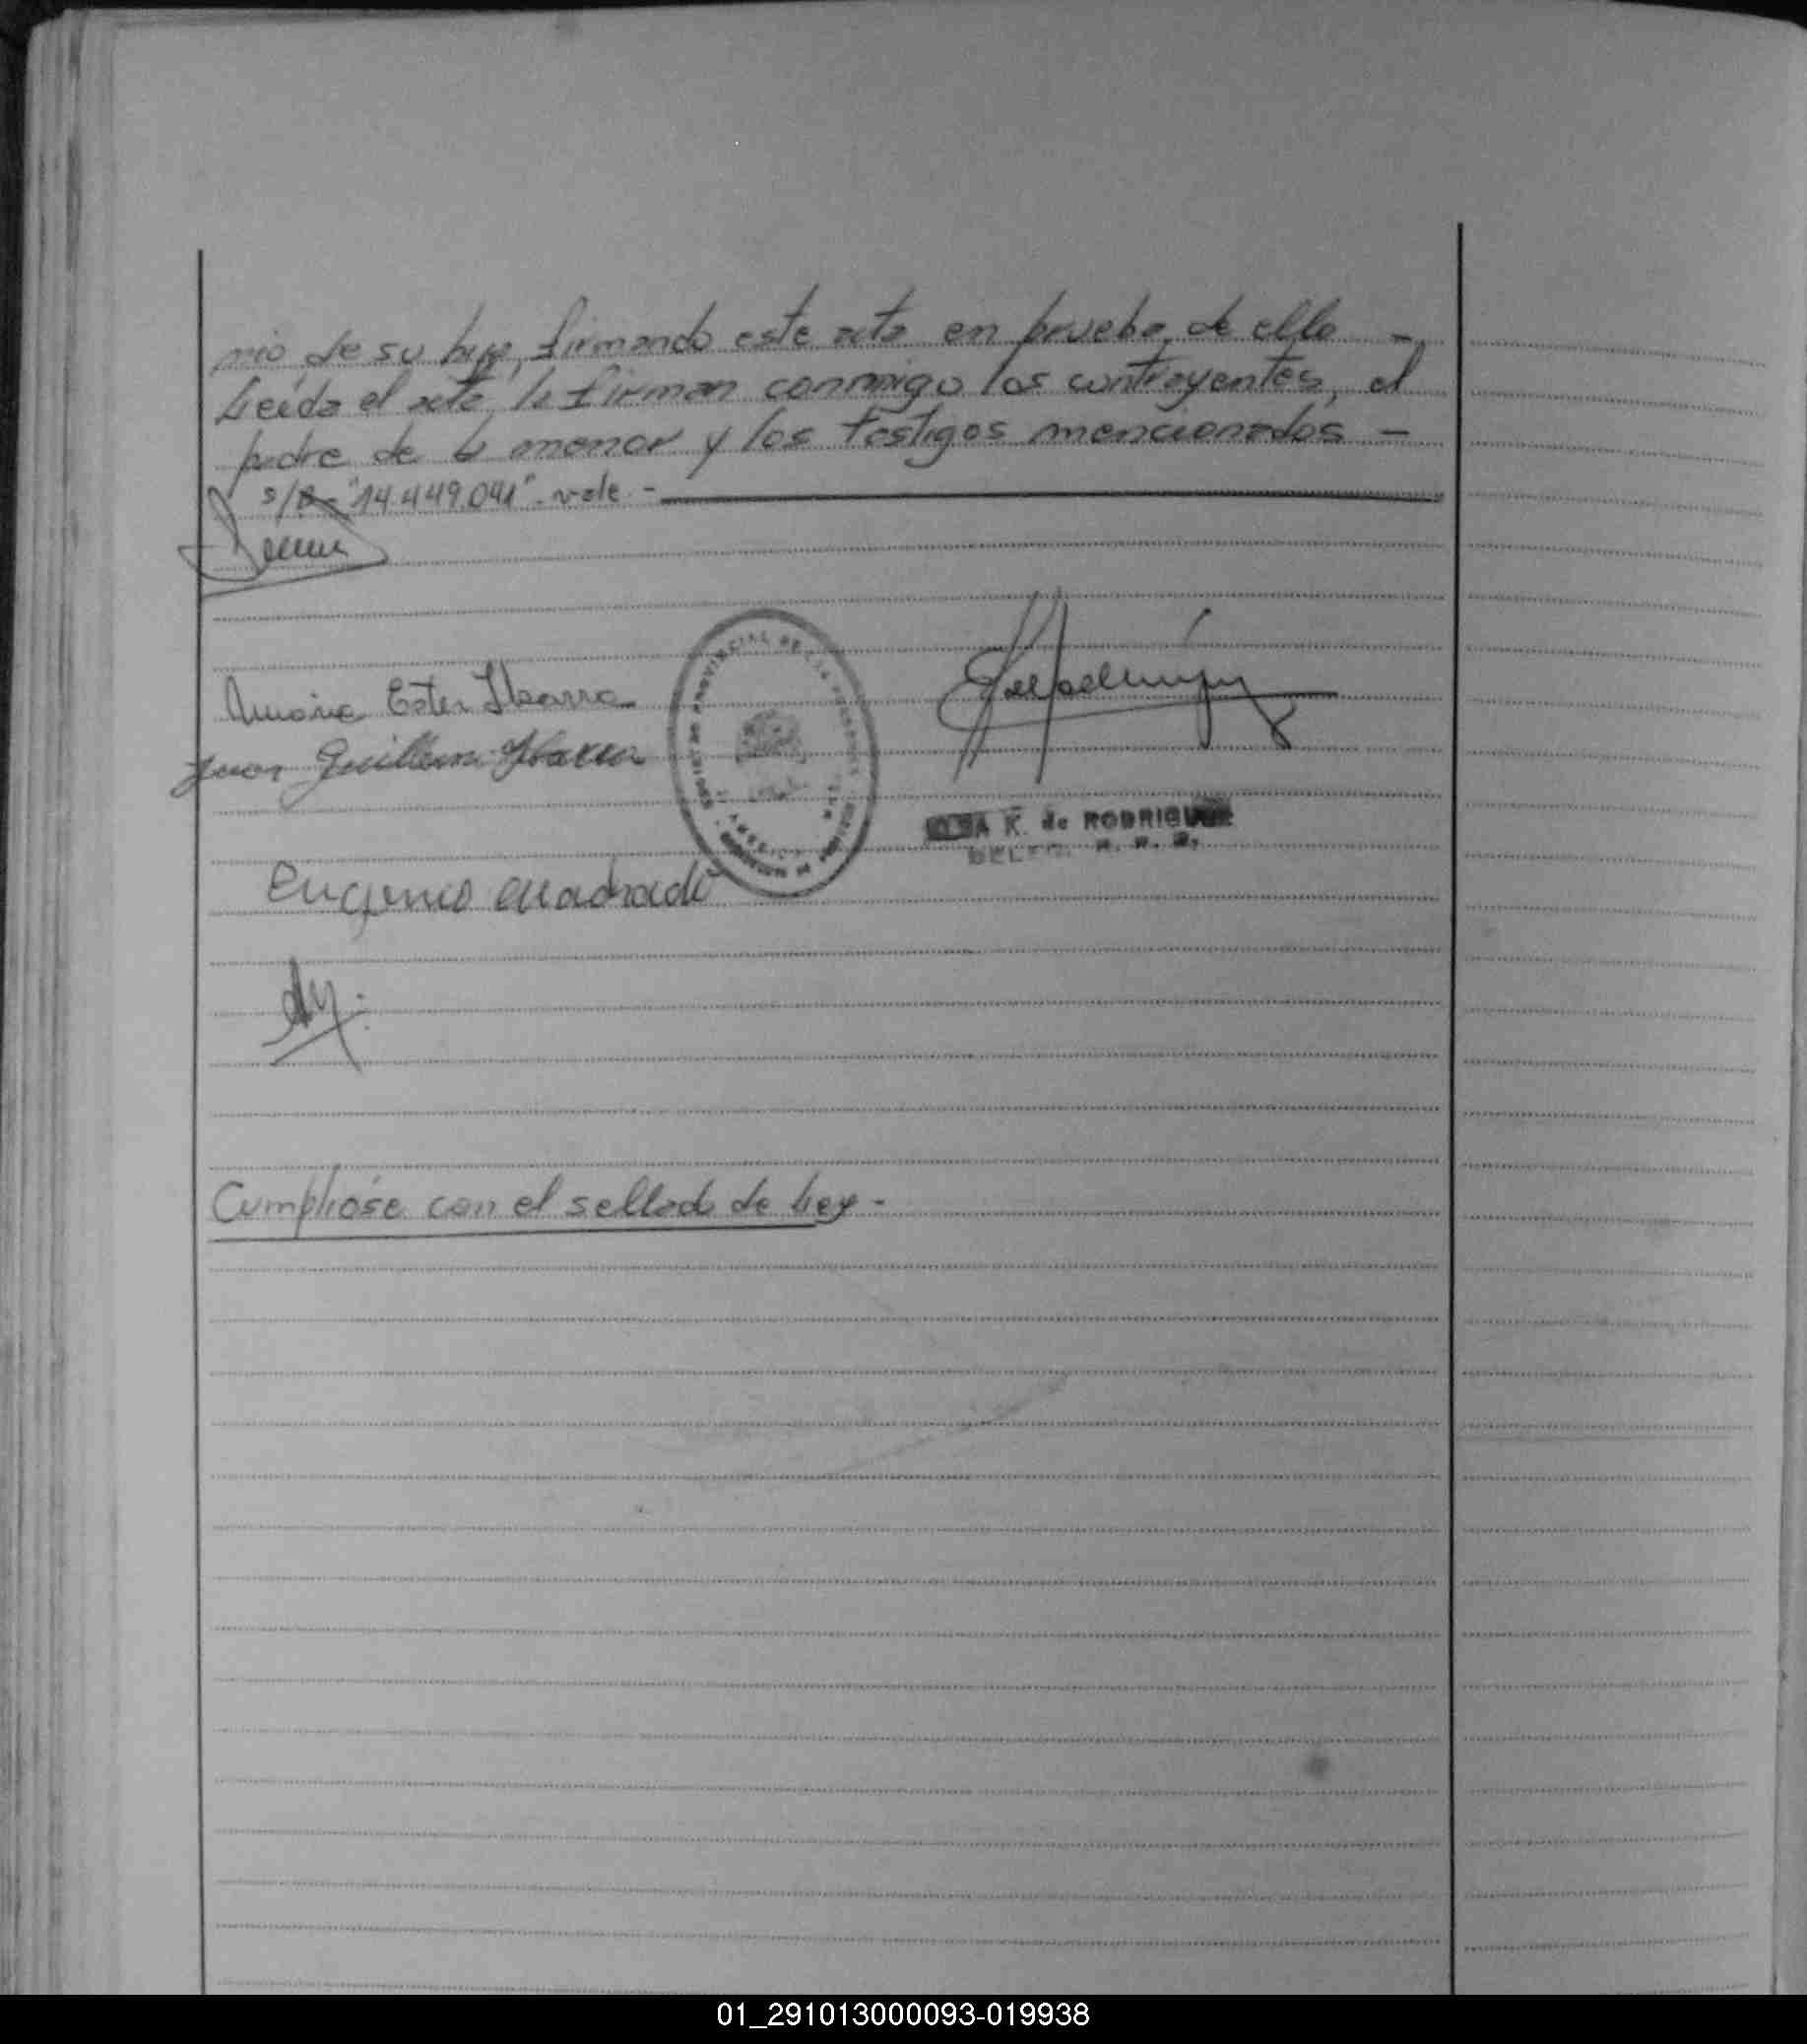 nio de su hija, firmando este acta en prueba de ello -
Leída el acta, la firman conmigo los contrayentes, el
padre de la menor y los testigos mencionados -
s/R - "14.449.041" - vale -
Maria Ester Ibarra
Juan Guillermo Ibarra
PROVINCIAL DE LAS PERSONAS
K. de RODRIGUEZ
DELEG.
Eugenio Cuadrado
Cumplióse con el sellado de Ley -
01_291013000093-019938